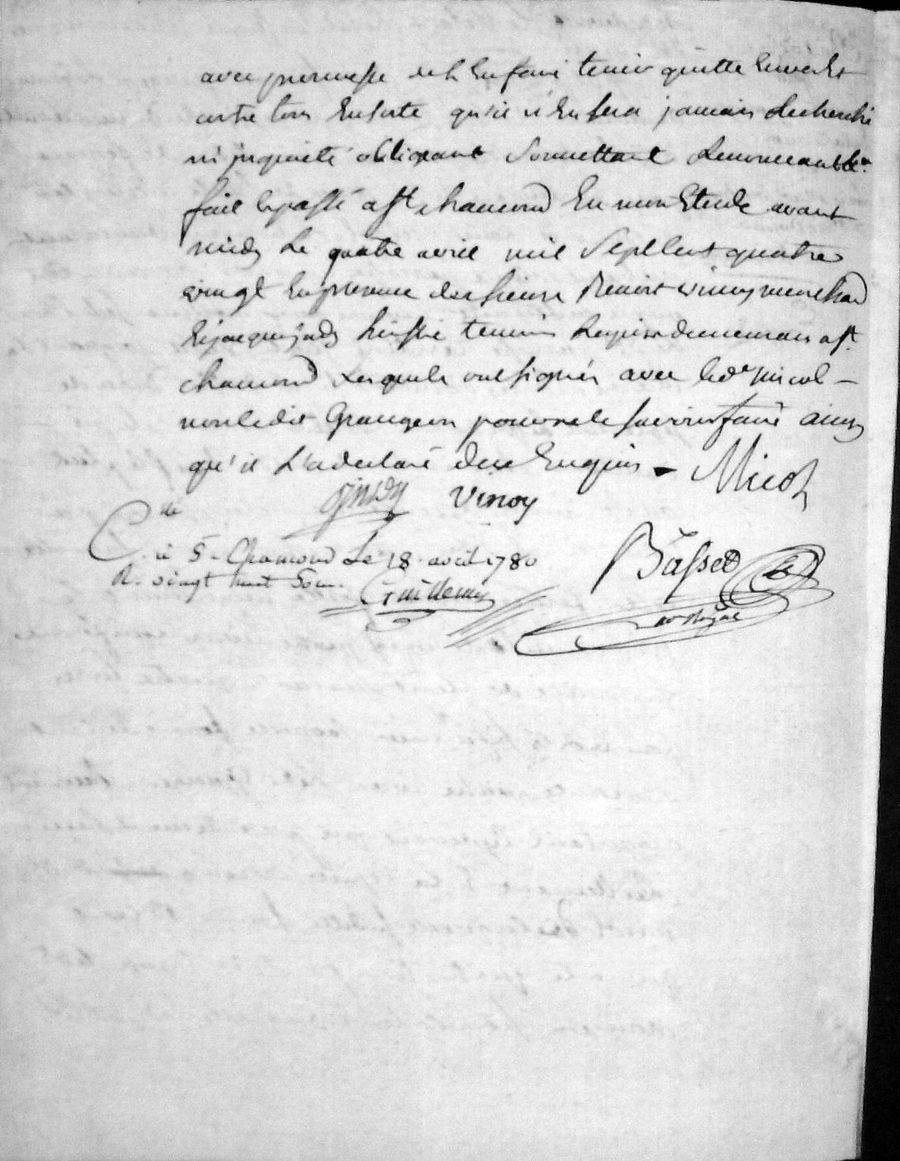 avec promesse de l'en faire tenir quitte envers et
contre tous En sorte qu'il n'En sera jamais Recherché
ni inquieté obligeant Soumettant Renonceant &c.
fait et passé a st. chamond En mon Etude avant
midy Le quatre avril mil Sept Cent quatre
vingt En presence des sieurs Benoit vinoy marchand
Et jacque huissie temoins Requis demeurans a st.
chamond Lesquels ont signés avec led. micol
non ledit Grangeon pour ne le savoir faire ainsy
qu'il L'a declaré de ce Enquis Micol
Vinoy
C.lé
à St. Chamond Le 18 avril 1780
R. vingt huit Sou. Guillemin
Basset
no.re Royal